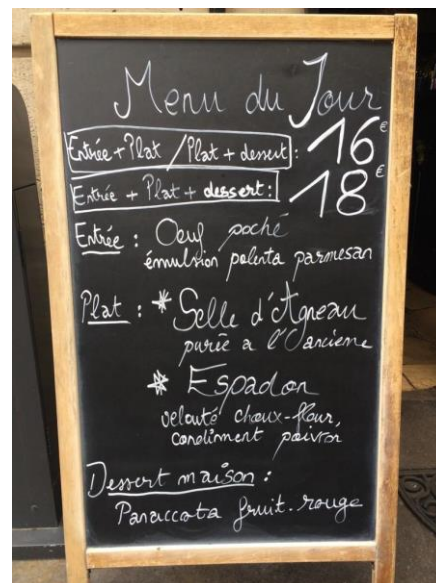 Menu du Jour
Entrée + Plat / Plat + dessert : 16€
Entrée + Plat + dessert : 18€
Entrée : Oeuf poché
émulsion polenta parmesan
Plat : * Selle d'Agneau
purée a l'Ancienne
* Espadon
velouté choux-fleur,
condiment poivron
Dessert maison :
Panaccota fruit-rouge